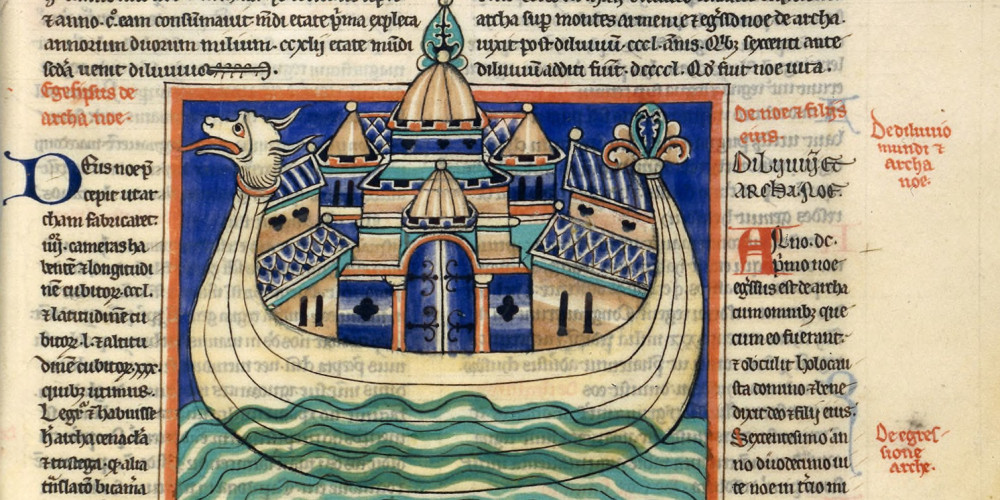 ⁊ anno. c͛. eam consũmauit m̃di etate p̃ma expleta
annorum duorum milium. ccxlij etate mũdi
sc̃da uenit diluuiũ.
Egesip̃tis de
archa noe.
Deus noe p̃
cepit ut ar
cham fabricaret:
cameras ha
bentẽ ⁊ longitudi
nẽ cubitoꝝ. ccc.
⁊ latitudinẽ cu
bitoꝝ. l. ⁊ altitu
dinẽ cubitoꝝ. xxx.
quibꝫ utimus.
Legit̃ ⁊ habuisse
archa cenacla
⁊ tristega. alia
archa sup montes armenie ⁊ egr̃sꝰ ẽ noe de archa.
uixit post diluuiũ. cccl. annis. Qui sexcenti ante
diluuiũ additi fiũt. dccccl. Qđ fuit noe uita.
De noe ⁊ filijs
eius.
Diluuiũ et
archa noe.
Anno. dc.
p̃mo noe
egr̃ssus est de archa
cum omnibꝫ que
cum eo fuerunt:
⁊ obtulit holocau
sta domino ⁊ bene
dixit deo ⁊ filij eius.
Sexcentesimo an
no duodecimo ui
te noe in t̃cio mi
De diluuio
mundi ⁊
archa
noe.
De egres-
sione
arche.